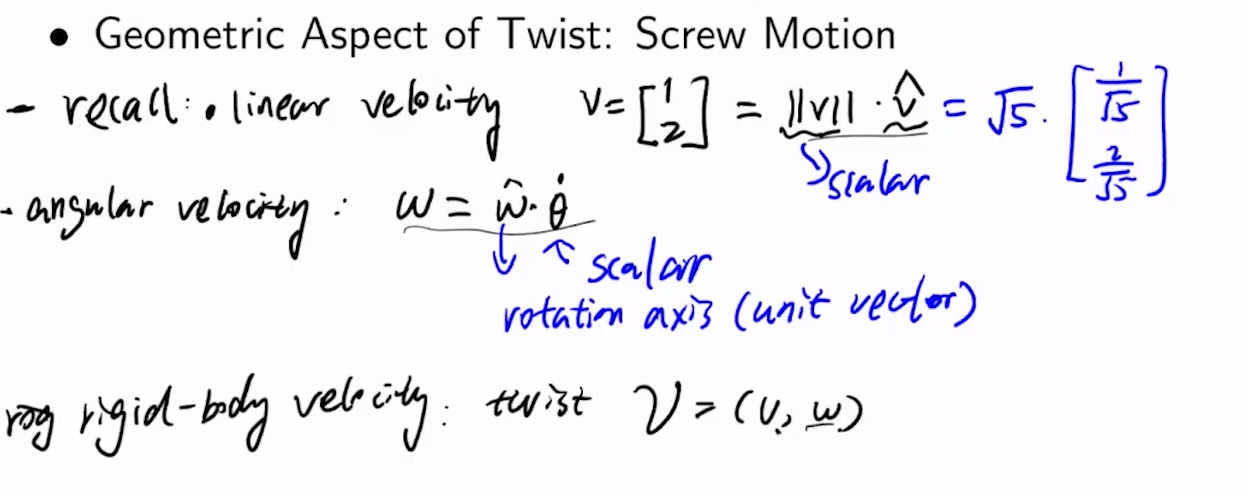 • Geometric Aspect of Twist: Screw Motion
- recall: • linear velocity v = [1 2] = ||v|| · v̂ = √5 · [1/√5 2/√5]
scalar
- angular velocity : ω = ω̂ · θ̇
scalarr
rotation axis (unit vector)
rigid-body velocity: twist 𝒱 = (v, ω)